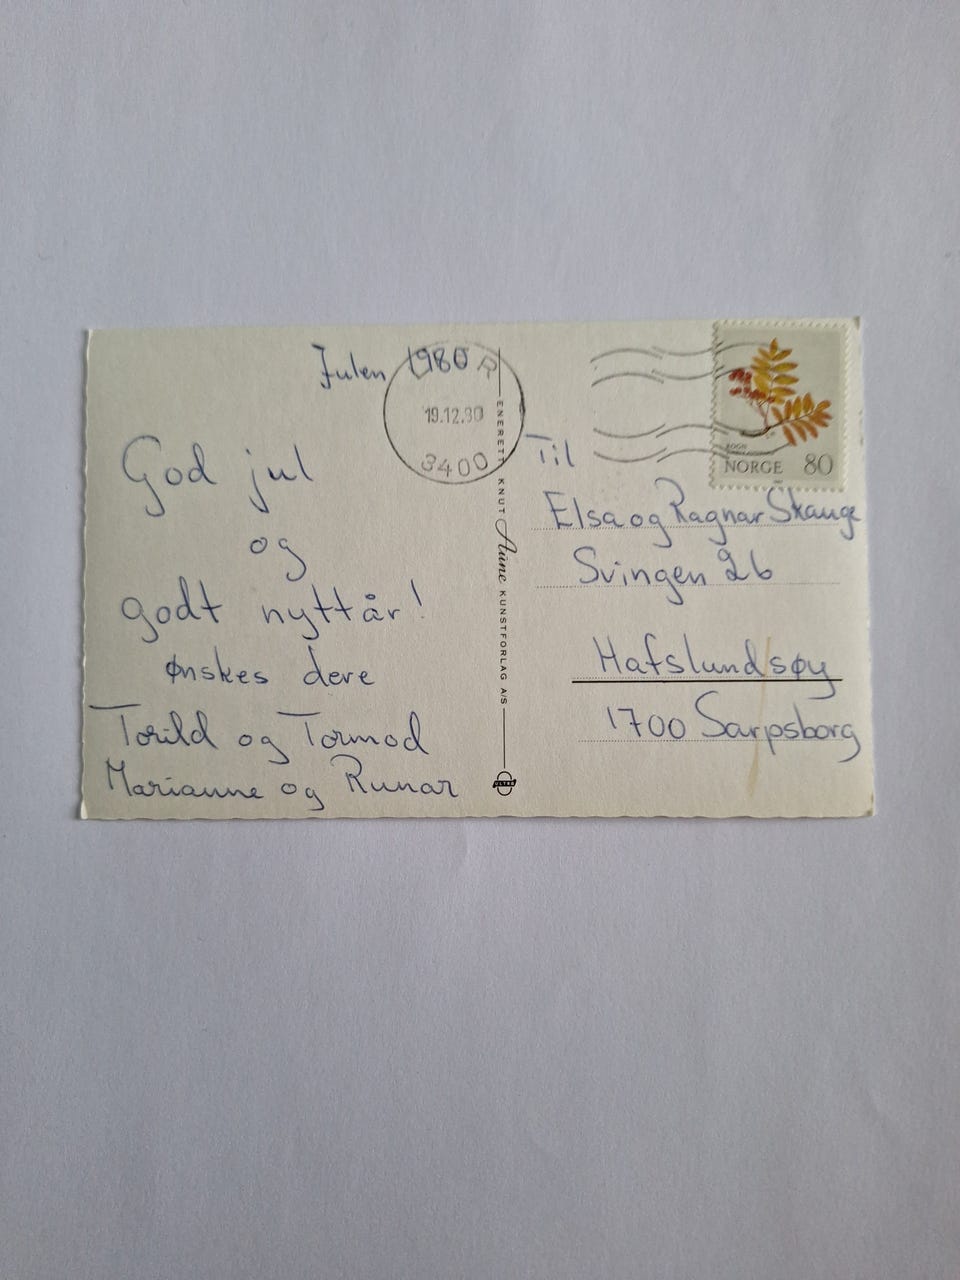 Julen 1980
God jul
og
godt nyttår!
ønskes dere
Torild og Tormod
Marianne og Runar
19.12.80
3400
ENERETT KNUT Aune KUNSTFORLAG A/S
ULTRA
ROGN
NORGE 80
Til
Elsa og Ragnar Skauge
Svingen 26
Hafslundsøy
1700 Sarpsborg